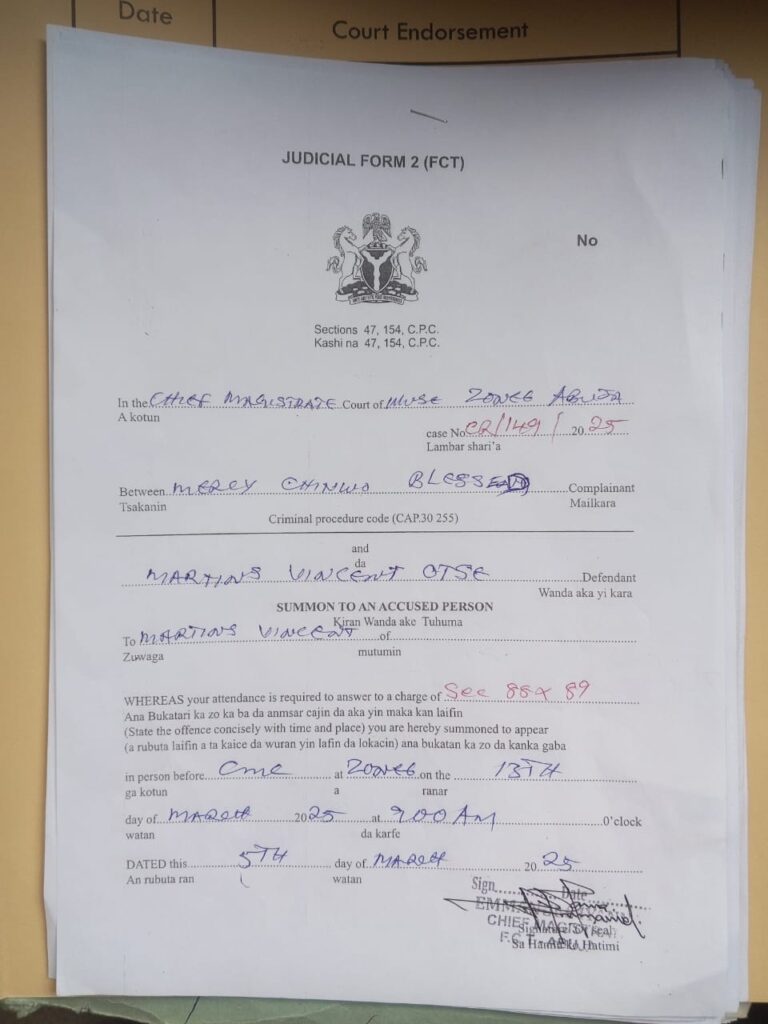 Date
Court Endorsement
JUDICIAL FORM 2 (FCT)
No
Sections 47, 154, C.P.C.
Kashi na 47, 154, C.P.C.
In the CHIEF MAGISTRATE Court of WUSE ZONE 6 ABUJA
A kotun
case No CR/149/ 20 25
Lambar shari'a
Between MERCY CHINWO BLESSED Complainant
Tsakanin Mailkara
Criminal procedure code (CAP.30 255)
and
da
MARTINS VINCENT OTSE Defendant
Wanda aka yi kara
SUMMON TO AN ACCUSED PERSON
Kiran Wanda ake Tuhuma
To MARTINS VINCENT of
Zuwaga mutumin
WHEREAS your attendance is required to answer to a charge of Sec 88 & 89
Ana Bukatari ka zo ka ba da anmsar cajin da aka yin maka kan laifin
(State the offence concisely with time and place) you are hereby summoned to appear
(a rubuta laifin a ta kaice da wuran yin lafin da lokacin) ana bukatan ka zo da kanka gaba
in person before CMC at ZONE 6 on the 13TH
ga kotun a ranar
day of MARCH 20 25 at 9:00 AM O'clock
watan da karfe
DATED this 5TH day of MARCH 20 25
An rubuta ran watan
Sign Date
CHIEF MAGISTRATE
Sa Hannu
Hatimi